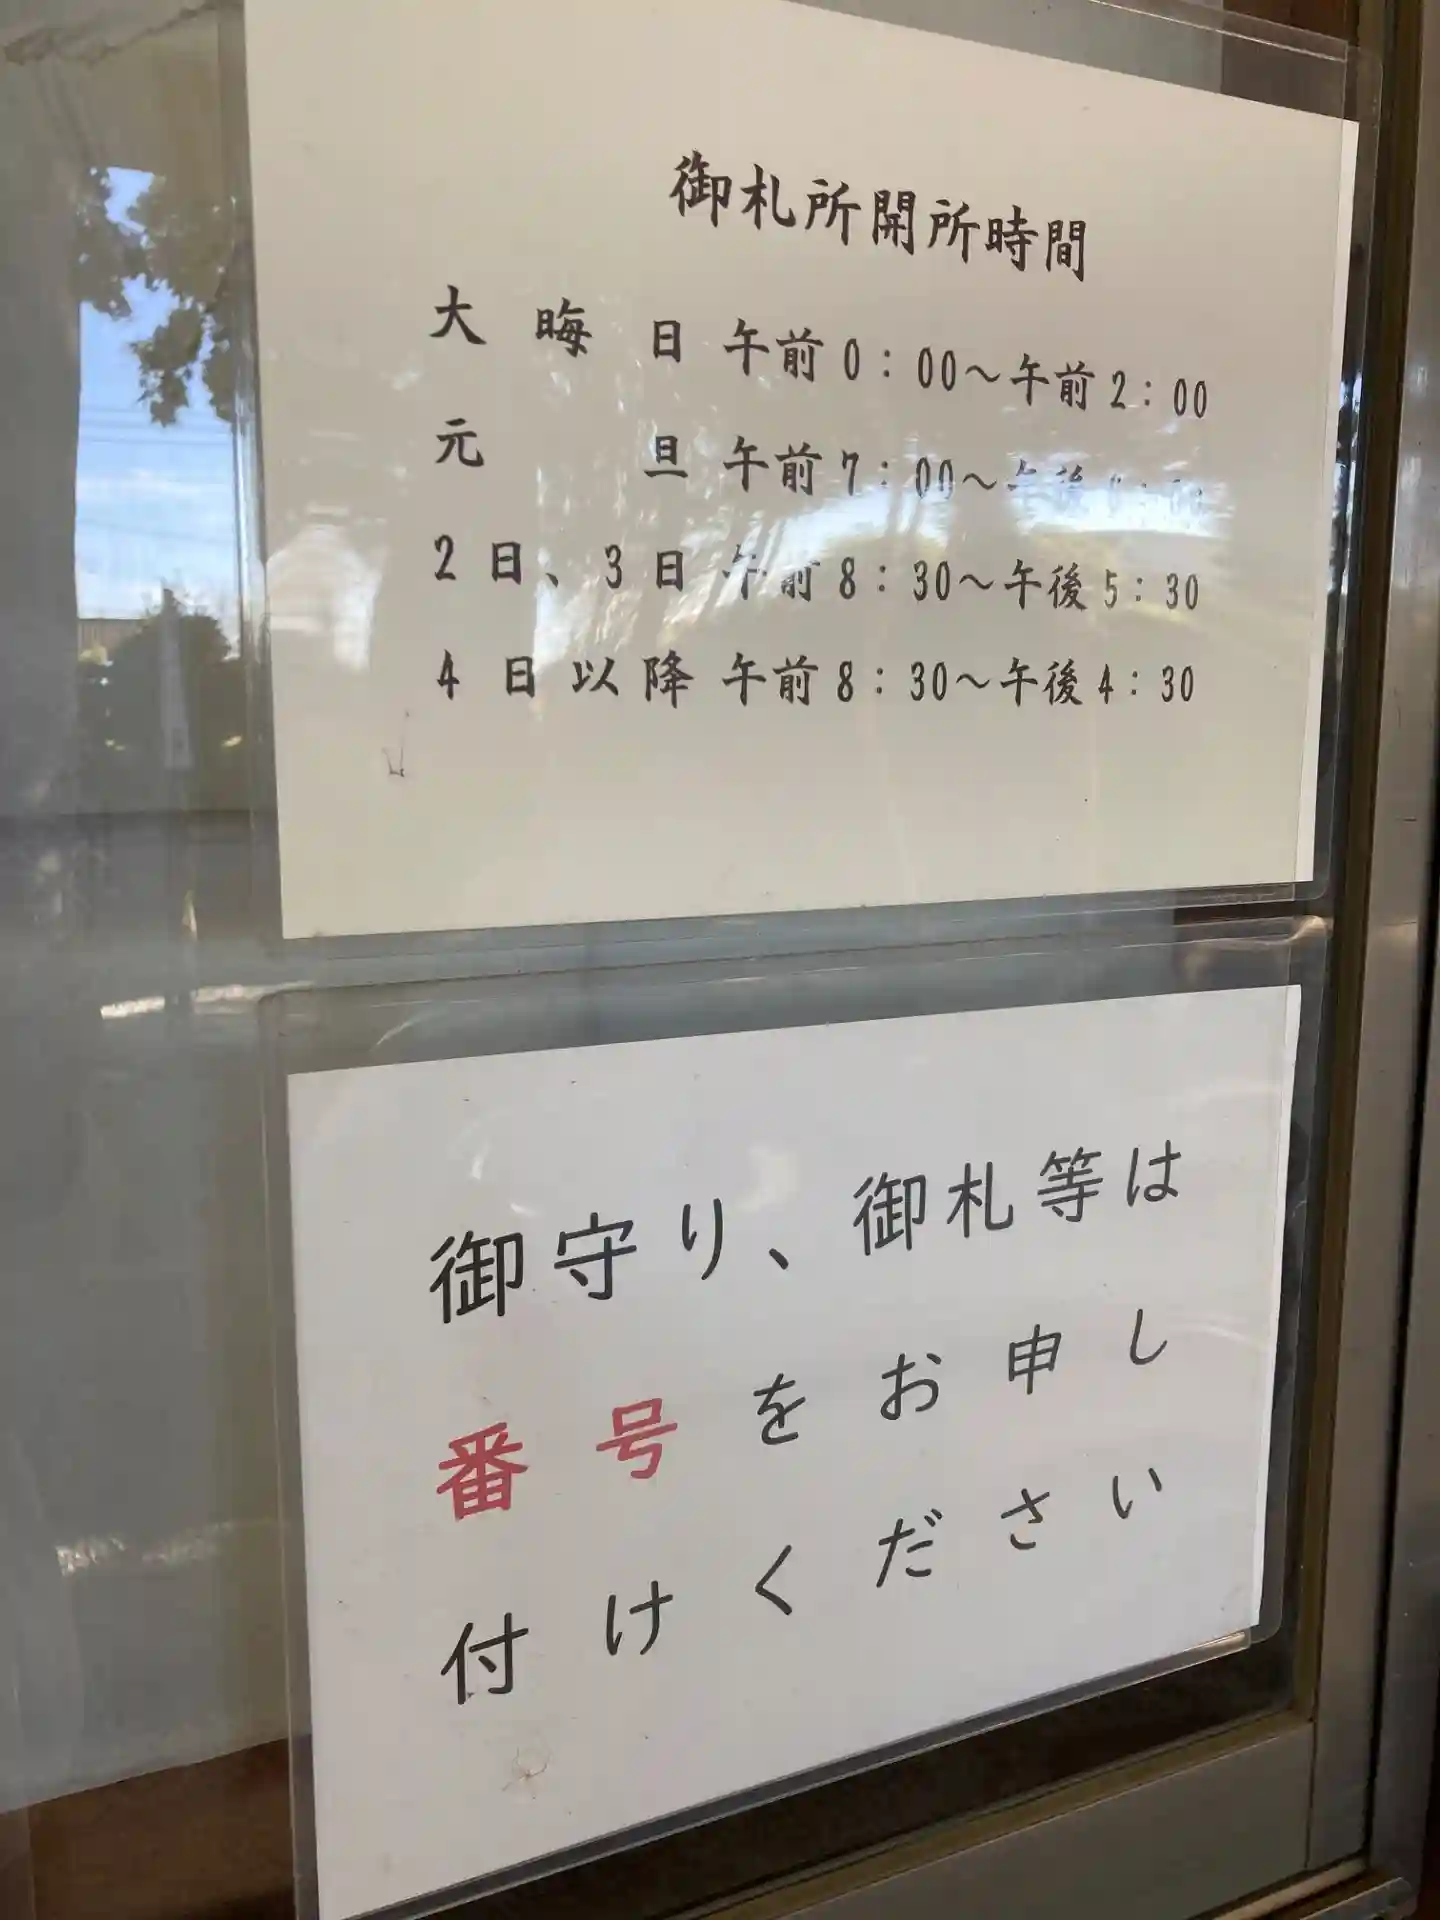 御札所開所時間
大晦日 午前0：00～午前2：00
元旦 午前7：00～午後
2日、3日 午前8：30～午後5：30
4日以降 午前8：30～午後4：30
御守り、御札等は
番号をお申し
付けください